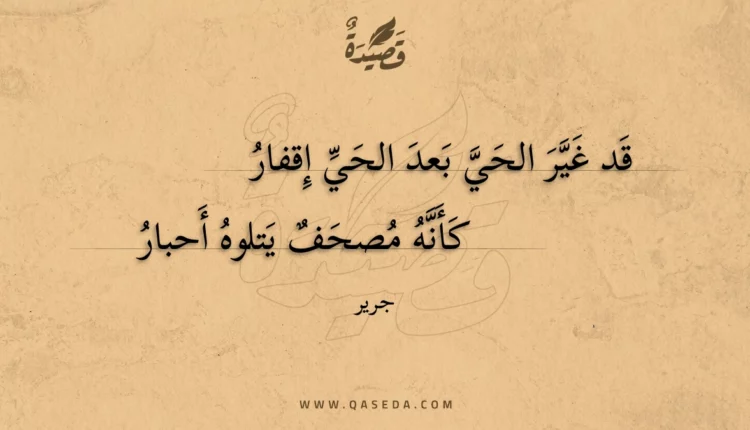 قَصِيْدَةٌ
قَد غَيَّرَ الحَيَّ بَعدَ الحَيِّ إِقفارُ
كَأَنَّهُ مُصحَفٌ يَتلوهُ أَحبارُ
جرير
WWW.QASEDA.COM